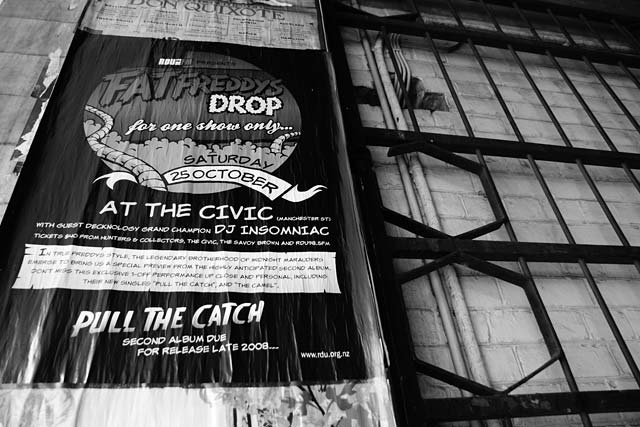 DON QUIXOTE
RDU PRESENTS
FAT FREDDYS
DROP
for one show only...
SATURDAY
25 OCTOBER
AT THE CIVIC (MANCHESTER ST)
WITH GUEST DECKNOLOGY GRAND CHAMPION DJ INSOMNIAC
TICKETS $40 FROM HUNTERS & COLLECTORS, THE CIVIC, THE SAVOY BROWN AND RDU98.5FM
IN TRUE FREDDYS STYLE, THE LEGENDARY BROTHERHOOD OF MIDNIGHT MARAUDERS
EMERGE TO BRING US A SPECIAL PREVIEW FROM THE HIGHLY ANTICIPATED SECOND ALBUM.
DON'T MISS THIS EXCLUSIVE 1-OFF PERFORMANCE UP CLOSE AND PERSONAL, INCLUDING
THEIR NEW SINGLES "PULL THE CATCH", AND "THE CAMEL".
PULL THE CATCH
SECOND ALBUM DUE
FOR RELEASE LATE 2008...
www.rdu.org.nz